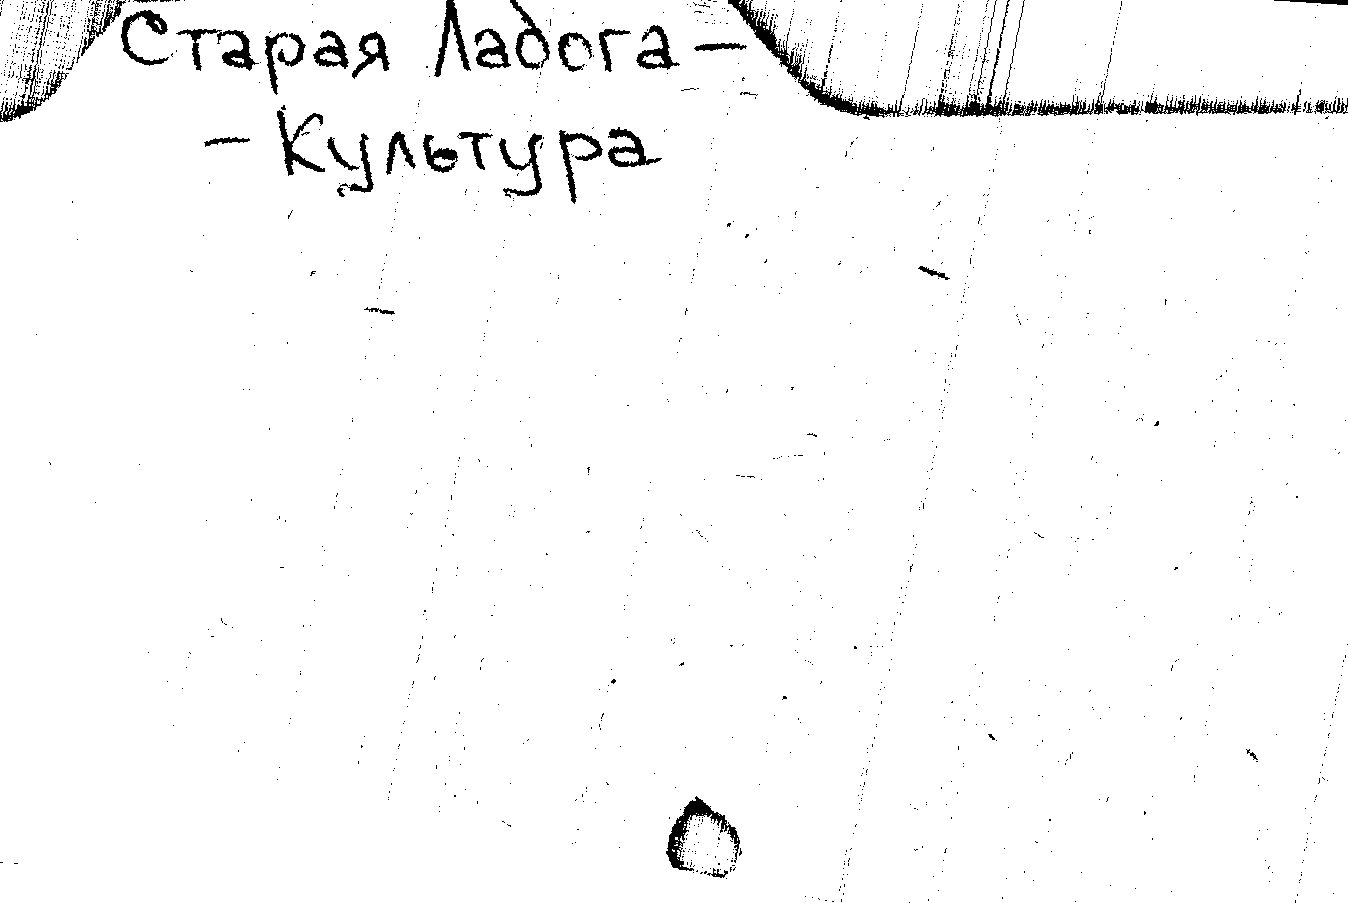 Старая Ладога -
- Культура